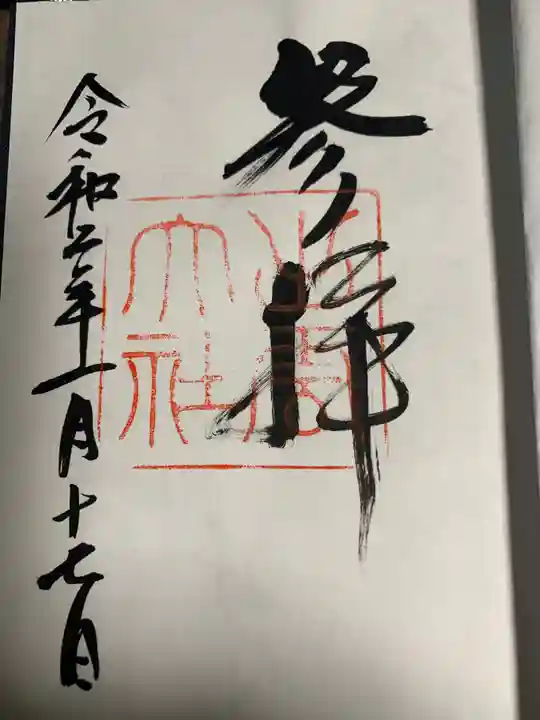 参拝
大社
令和二年一月十七日